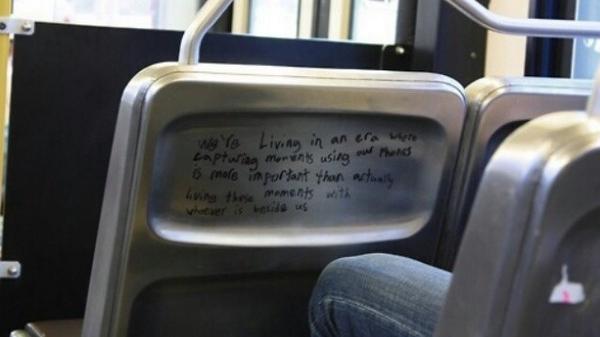 We're Living in an era where
capturing moments using our Phones
is more important than actually
living these moments with
whoever is beside us